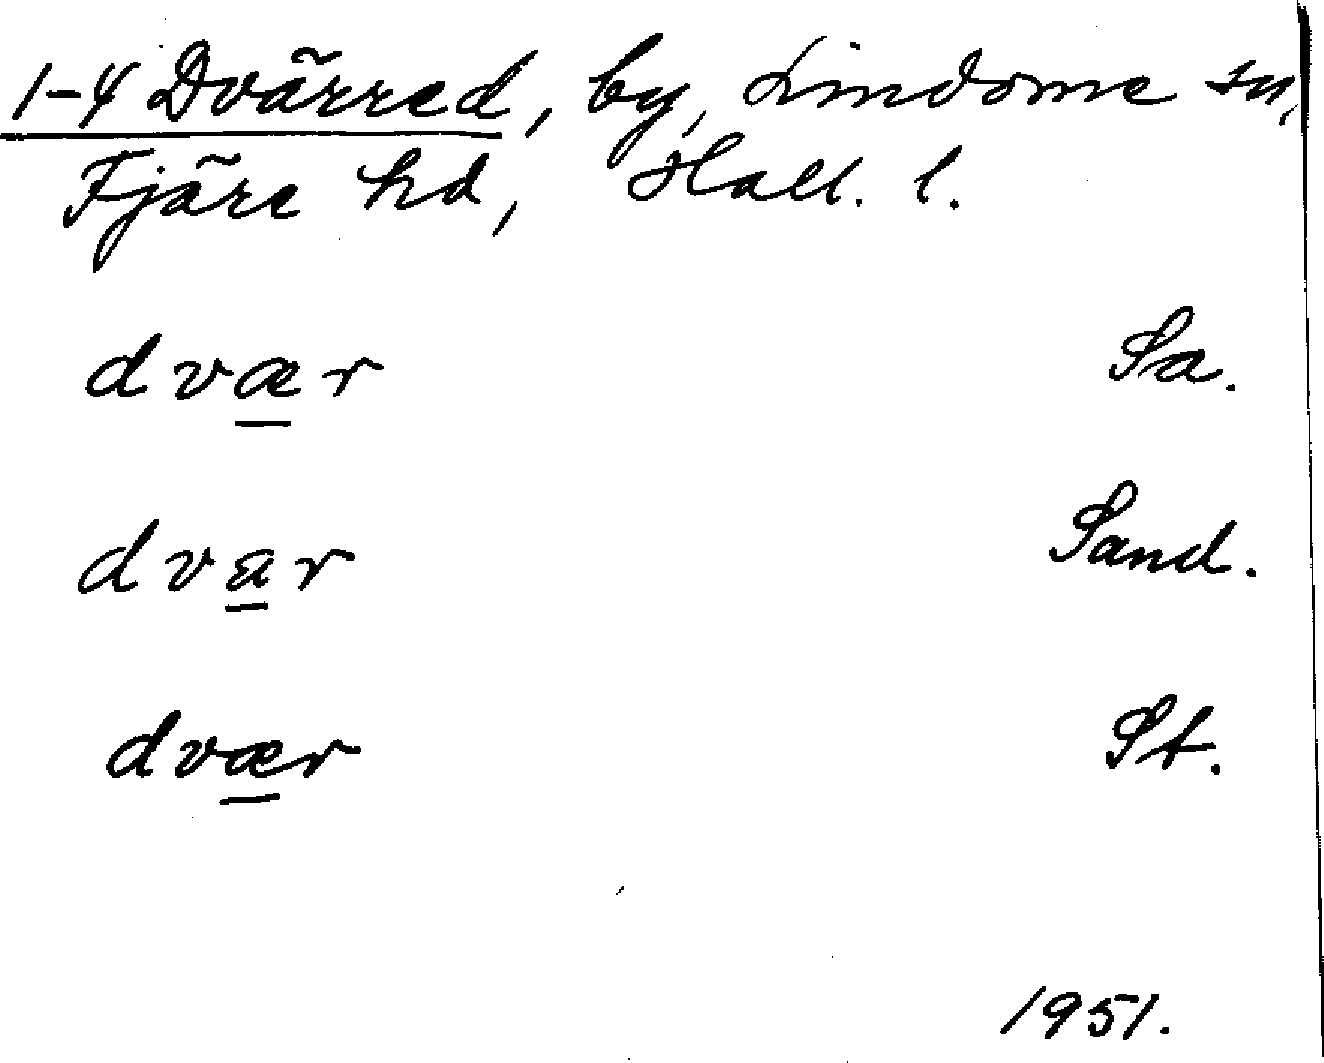 1-4 Dvärred, by, Lindome sn,
Fjäre hd, Hall. l.
dvær Sa.
dvar Sand.
dvær St.
1951.